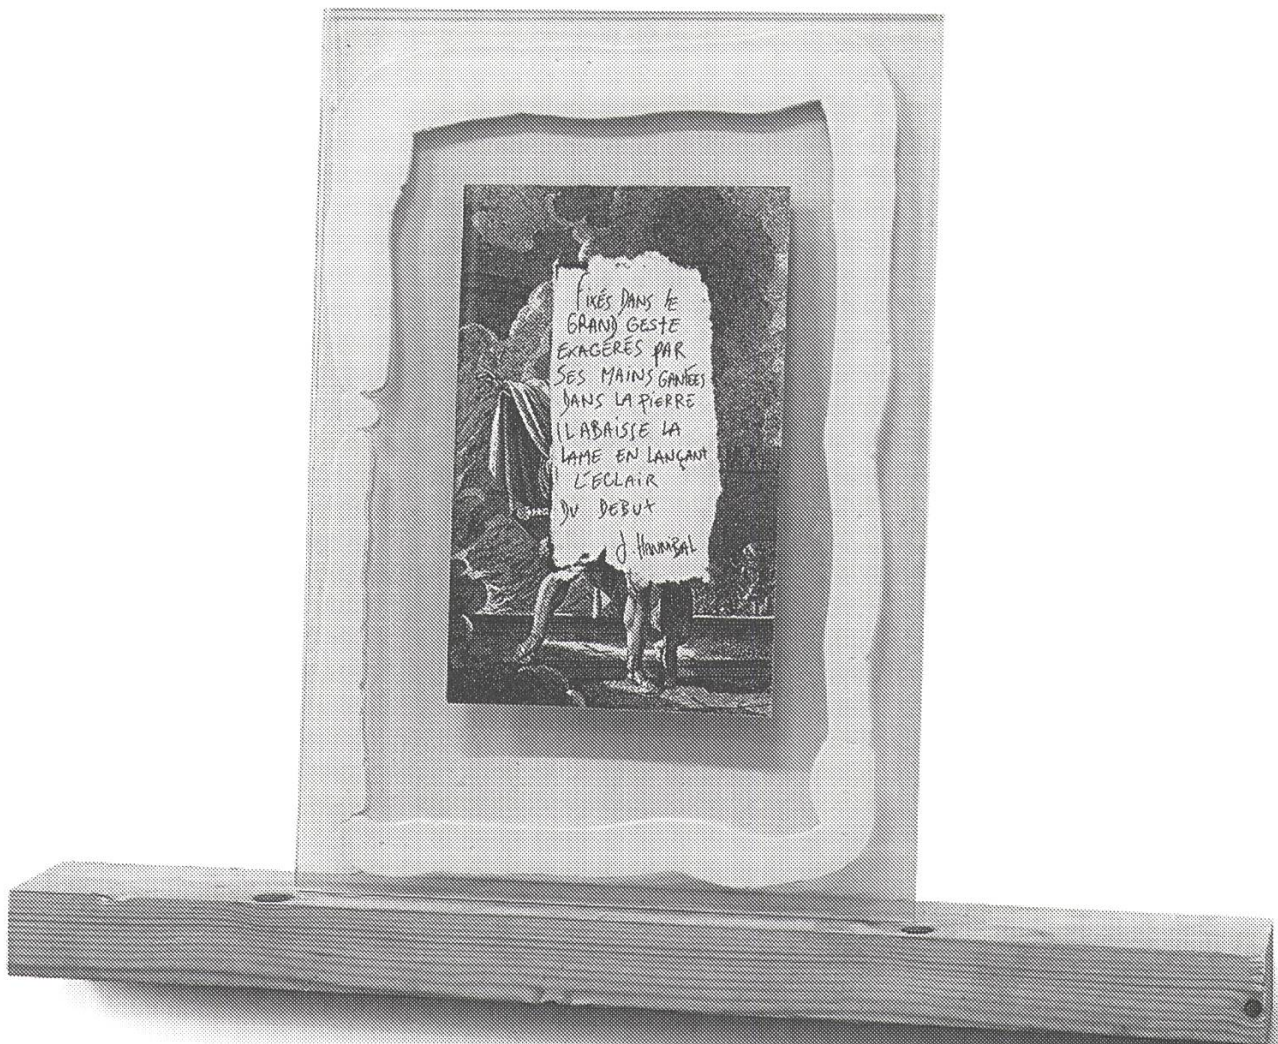 FIXÉS DANS LE
GRAND GESTE
EXAGÉRÉS PAR
SES MAINS GANTÉES
DANS LA PIERRE
IL ABAISSE LA
LAME EN LANÇANT
L'ECLAIR
DU DEBUT
J. HANNIBAL